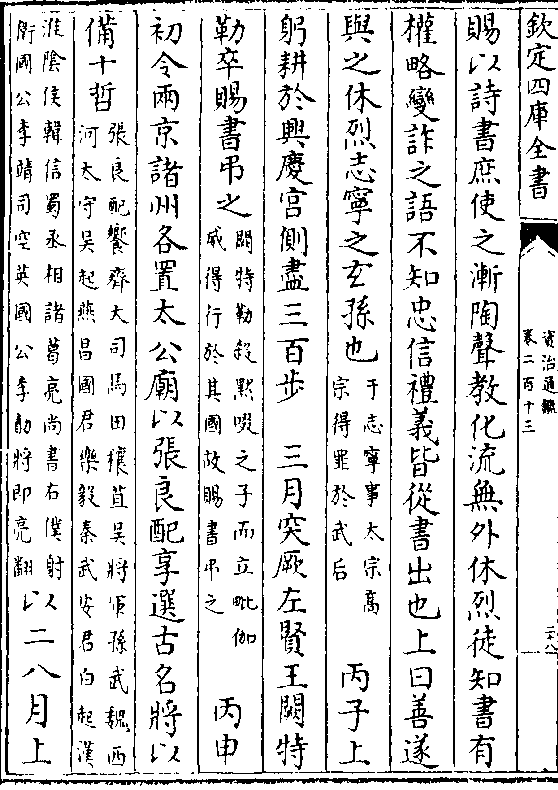 欽定四庫全書
資治通鑑
卷二百十三
賜以詩書庶使之漸陶聲教化流無外休烈徒知書有
權略變詐之語不知忠信禮義皆從書出也上曰善遂
與之休烈志寧之玄孫也
于志寧事太宗高
宗得罪於武后
丙子上
躬耕於興慶宮側盡三百步 三月突厥左賢王闕特
勒卒賜書弔之
闕特勒殺默啜之子而立毗伽
威得行於其國故賜書弔之
丙申
初令兩京諸州各置太公廟以張良配享選古名將以
備十哲
張良配饗齊大司馬田穰苴吳將軍孫武魏西
河太守吳起燕昌國君樂毅秦武安君白起漢
淮陰侯韓信蜀丞相諸葛亮尚書右僕射
衛國公李靖司空英國公李勣將即亮翻
以二八月上